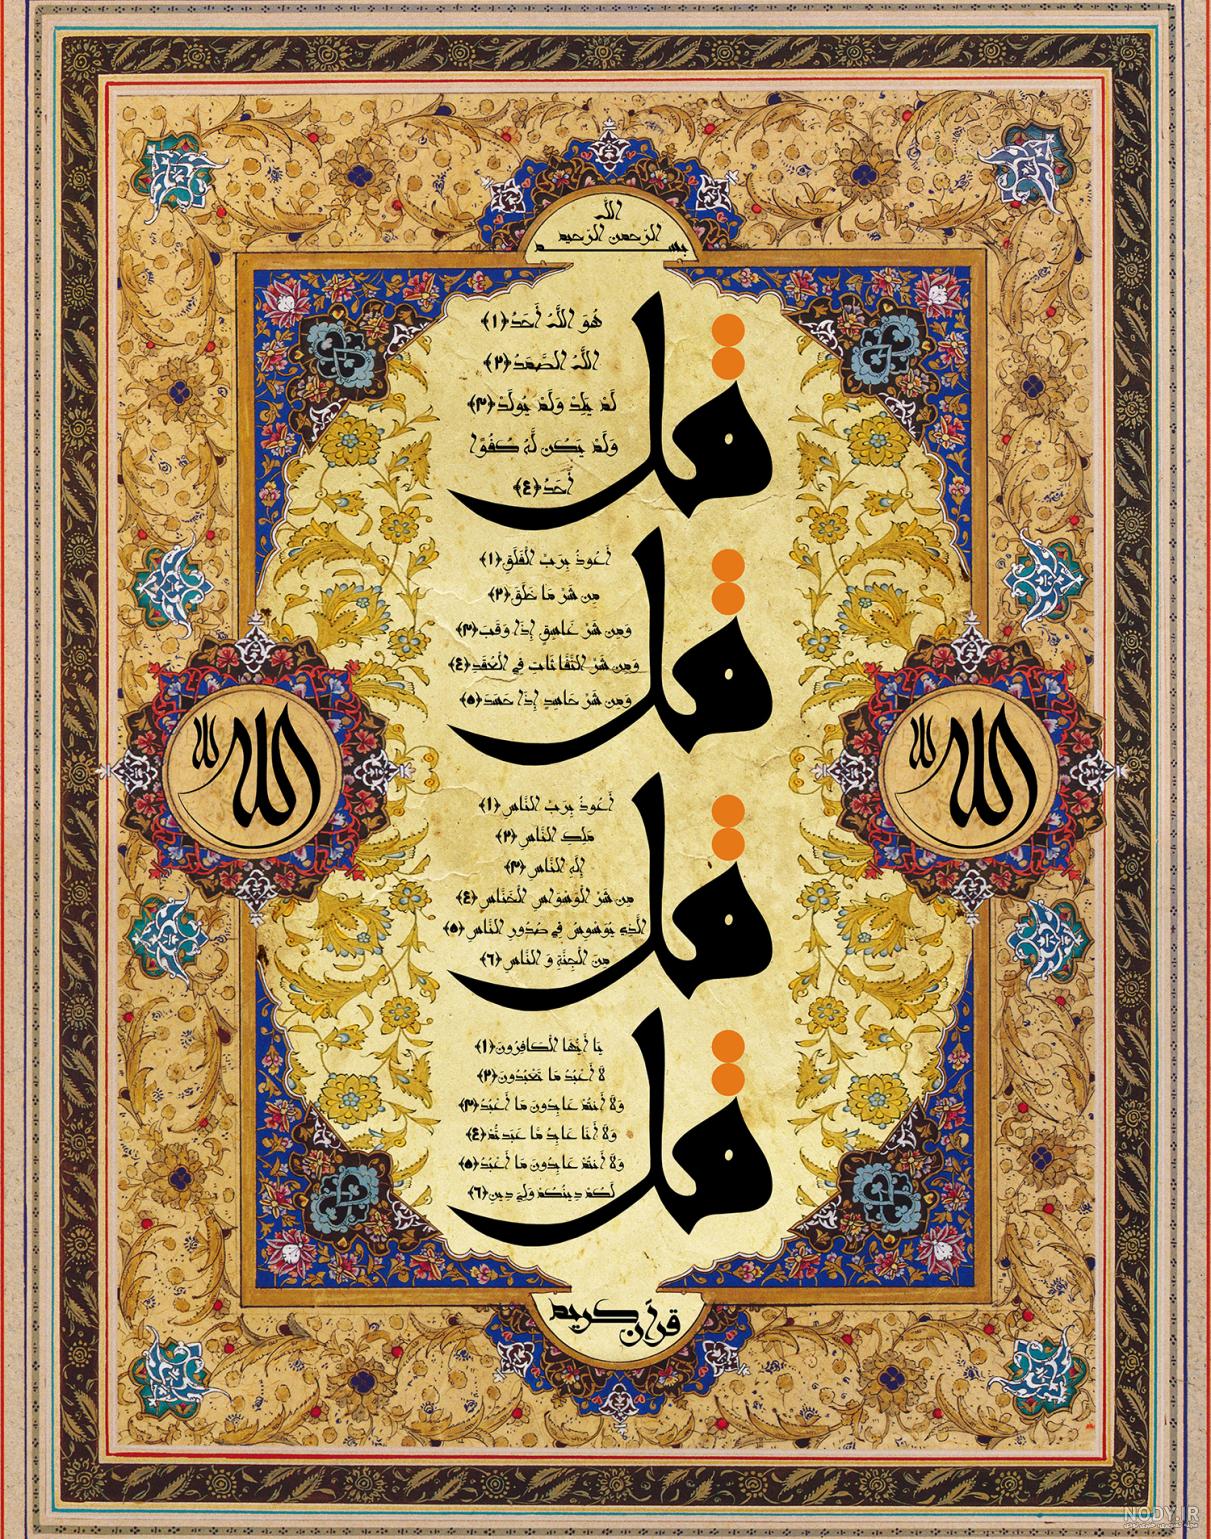 الله
الرحمن الرحيم
بسم
قل
هُوَ اللَّهُ أَحَدٌ ﴿١﴾
اللَّهُ الصَّمَدُ ﴿٢﴾
لَمْ يَلِدْ وَلَمْ يُولَدْ ﴿٣﴾
وَلَمْ يَكُن لَّهُ كُفُوًا
أَحَدٌ ﴿٤﴾
قل
أَعُوذُ بِرَبِّ الْفَلَقِ ﴿١﴾
مِن شَرِّ مَا خَلَقَ ﴿٢﴾
وَمِن شَرِّ غَاسِقٍ إِذَا وَقَبَ ﴿٣﴾
وَمِن شَرِّ النَّفَّاثَاتِ فِي الْعُقَدِ ﴿٤﴾
وَمِن شَرِّ حَاسِدٍ إِذَا حَسَدَ ﴿٥﴾
الله
الله
قل
أَعُوذُ بِرَبِّ النَّاسِ ﴿١﴾
مَلِكِ النَّاسِ ﴿٢﴾
إِلَٰهِ النَّاسِ ﴿٣﴾
مِن شَرِّ الْوَسْوَاسِ الْخَنَّاسِ ﴿٤﴾
الَّذِي يُوَسْوِسُ فِي صُدُورِ النَّاسِ ﴿٥﴾
مِنَ الْجِنَّةِ وَ النَّاسِ ﴿٦﴾
قل
يَا أَيُّهَا الْكَافِرُونَ ﴿١﴾
لَا أَعْبُدُ مَا تَعْبُدُونَ ﴿٢﴾
وَلَا أَنتُمْ عَابِدُونَ مَا أَعْبُدُ ﴿٣﴾
وَلَا أَنَا عَابِدٌ مَّا عَبَدتُّمْ ﴿٤﴾
وَلَا أَنتُمْ عَابِدُونَ مَا أَعْبُدُ ﴿٥﴾
لَكُمْ دِينُكُمْ وَلِيَ دِينِ ﴿٦﴾
قرآن كريم
NODY.IR